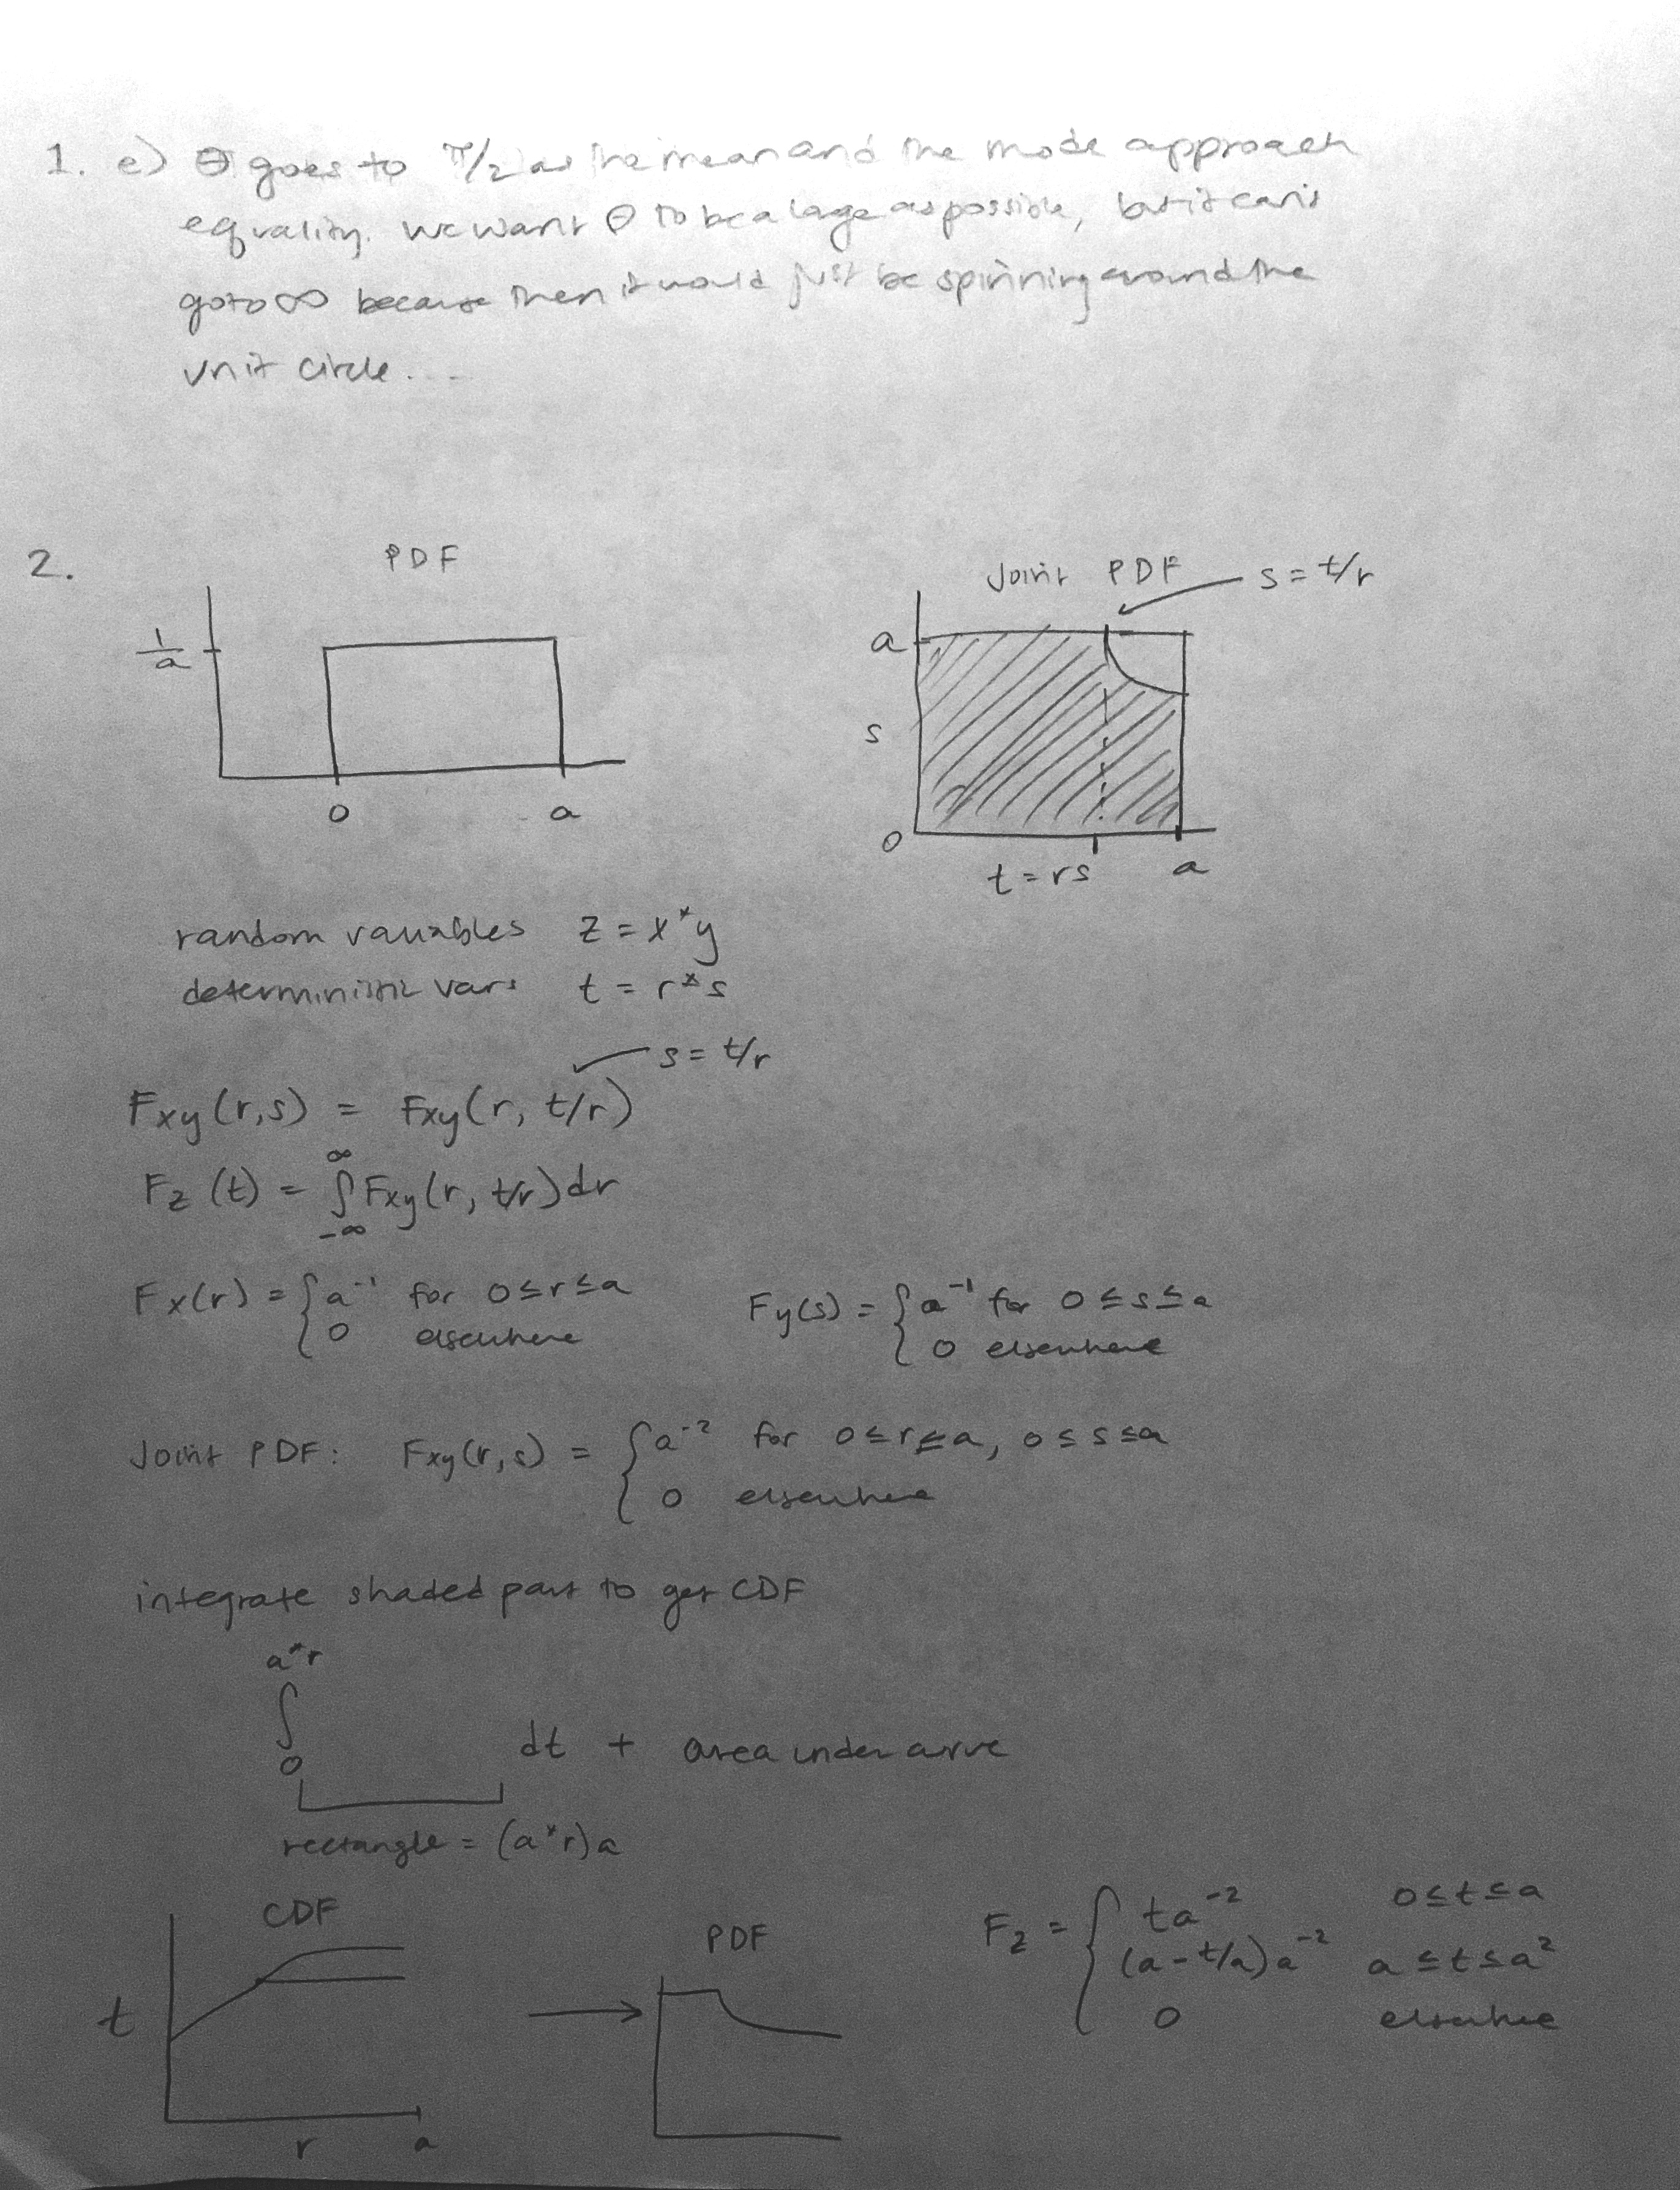 1. e) θ goes to π/2 as the mean and the mode approach
equality. We want θ to be a large as possible, but it can't
go to ∞ because then it would just be spinning around the
unit circle...
2.
PDF
1/a
0 a
Joint PDF s = t/r
a
s
0
t = rs a
random variables z = x*y
deterministic vars t = r*s
s = t/r
Fxy(r,s) = Fxy(r, t/r)
Fz(t) = ∫_{-∞}^{∞} Fxy(r, t/r) dr
Fx(r) = { a⁻¹ for 0≤r≤a
0 elsewhere
Fy(s) = { a⁻¹ for 0≤s≤a
0 elsewhere
Joint PDF: Fxy(r,s) = { a⁻² for 0≤r≤a, 0≤s≤a
0 elsewhere
integrate shaded part to get CDF
a*r
∫
0
dt + area under curve
rectangle = (a*r)a
CDF
t
r a
PDF
Fz = { ta⁻² 0≤t≤a
(a-t/a)a⁻² a≤t≤a²
0 elsewhere